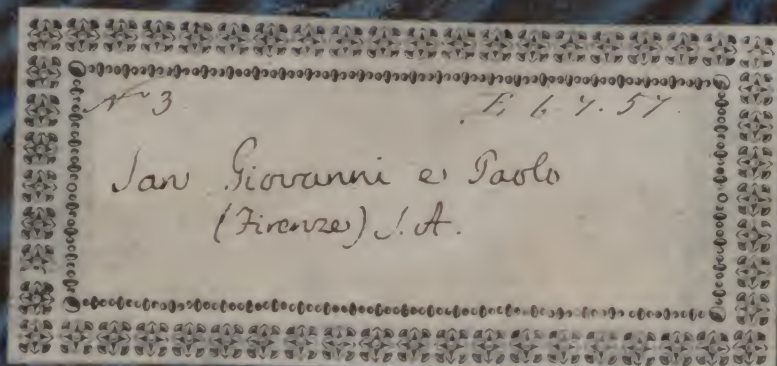 No 3 E, 6.7.57.
San Giovanni e Paolo
(Firenze) S.A.